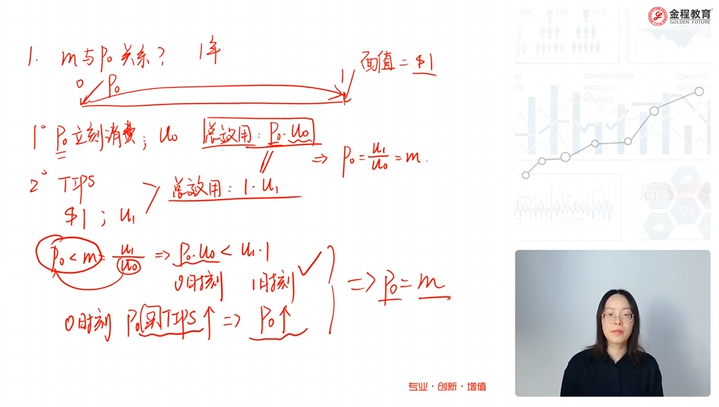 1. m与P₀关系? 1年
0 P₀ 1 面值 = $1
1° P₀立刻消费; u₀ 总效用: P₀·u₀ ⇒ P₀ = u₁/u₀ = m.
2° TIPS 总效用: 1·u₁
$1; u₁
P₀ < m = u₁/u₀ ⇒ P₀·u₀ < u₁·1
0时刻 1时刻 ✓ ⇒ P₀ = m
0时刻 P₀买TIPS↑ ⇒ P₀↑
金程教育
GOLDEN FUTURE
专业·创新·增值